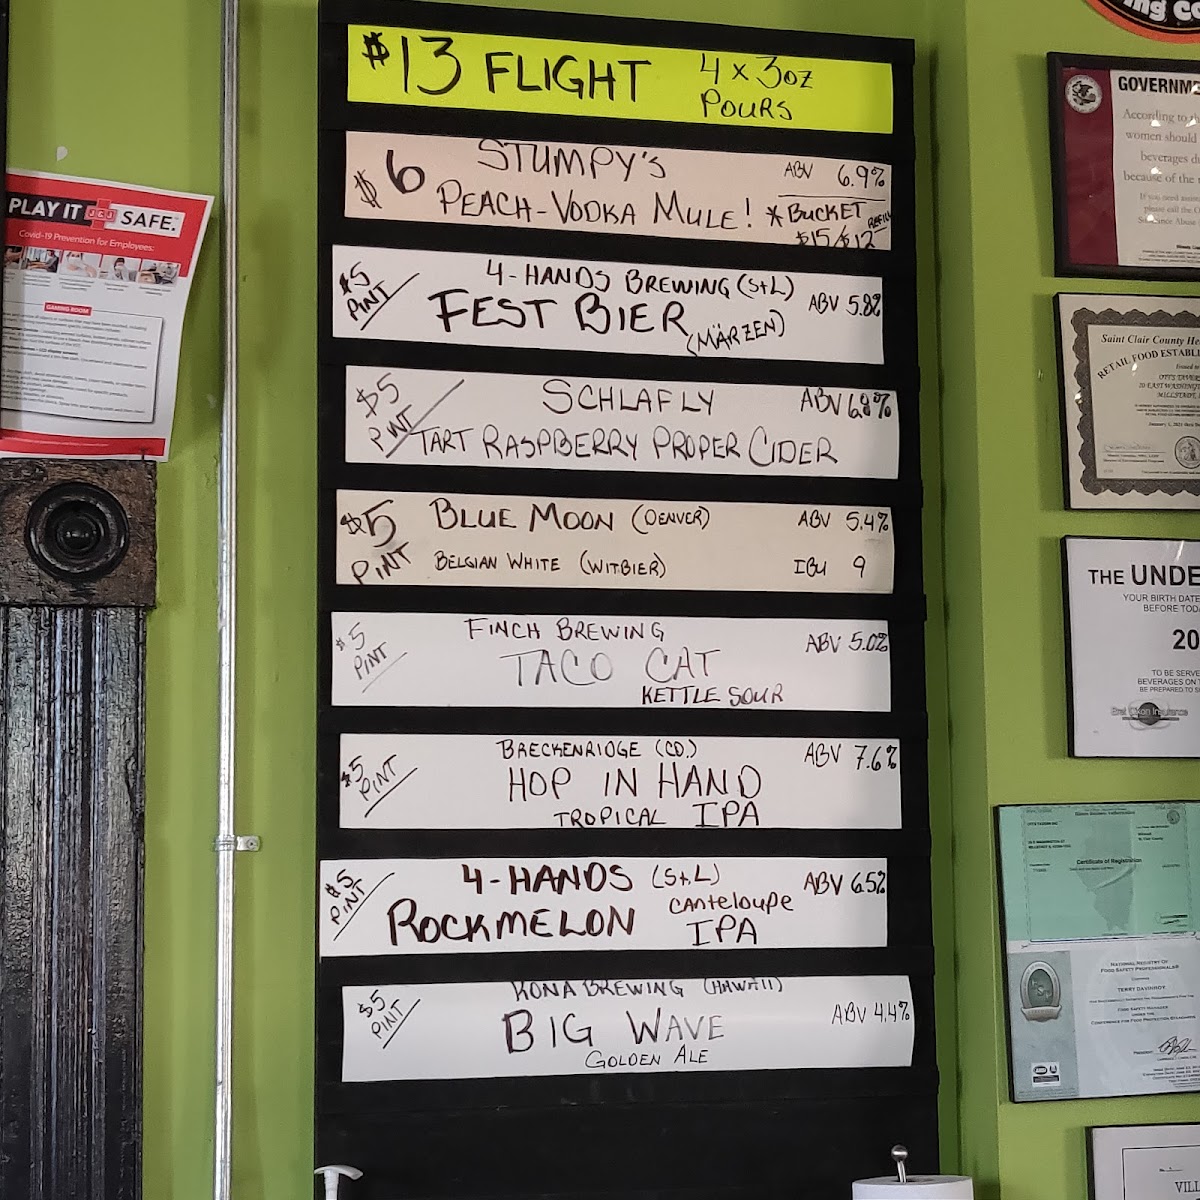 $13 FLIGHT 4 x 3oz POURS
$6 STUMPY'S ABV 6.9%
PEACH-VODKA MULE! *BUCKET REFILL
$15/$12
$5 PINT
4-HANDS BREWING (STL)
FEST BIER (MÄRZEN)
ABV 5.8%
$5 PINT
SCHLAFLY
TART RASPBERRY PROPER CIDER
$5 PINT
BLUE MOON (DENVER) ABV 5.4%
BELGIAN WHITE (WITBIER) IBU 9
$5 PINT
FINCH BREWING ABV 5.0%
TACO CAT
KETTLE SOUR
$5 PINT
BRECKENRIDGE (CO.) ABV 7.6%
HOP IN HAND
TROPICAL IPA
$5 PINT
4-HANDS (STL) ABV 6.5%
ROCKMELON CANTELOUPE IPA
$5 PINT
KONA BREWING (HAWAII)
BIG WAVE ABV 4.4%
GOLDEN ALE
PLAY IT J&J SAFE.
Covid-19 Prevention for Employees:
GAMING ROOM
GOVERNME
According to
women should
beverages du
because of the
Saint Clair County He
RETAIL FOOD ESTABL
THE UNDE
YOUR BIRTH DATE
BEFORE TODA
20
TO BE SERVE
BEVERAGES ON
BE PREPARED TO
Certificate of Registration
NATIONAL REGISTRY OF
FOOD SAFETY PROFESSIONALS
TERRY DAVINROY
FOOD SAFETY MANAGER
UNDER THE
CONFERENCE FOR FOOD PROTECTION STANDARDS
VILL